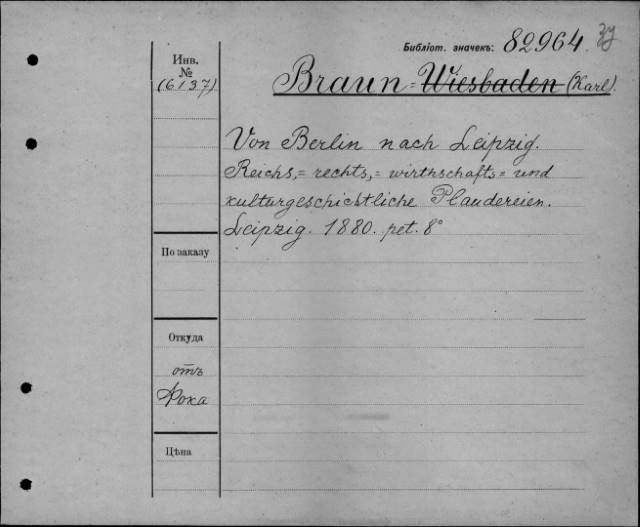 Библіот. значекъ: 82964.
Инв.
№
(6137)
Braun = Wiesbaden (Karl).
Von Berlin nach Leipzig.
Reichs,= rechts,= wirthschafts= und
kulturgeschichtliche Plaudereien.
Leipzig. 1880. pet. 8°
По заказу
Откуда
отъ
Фока
Цѣна